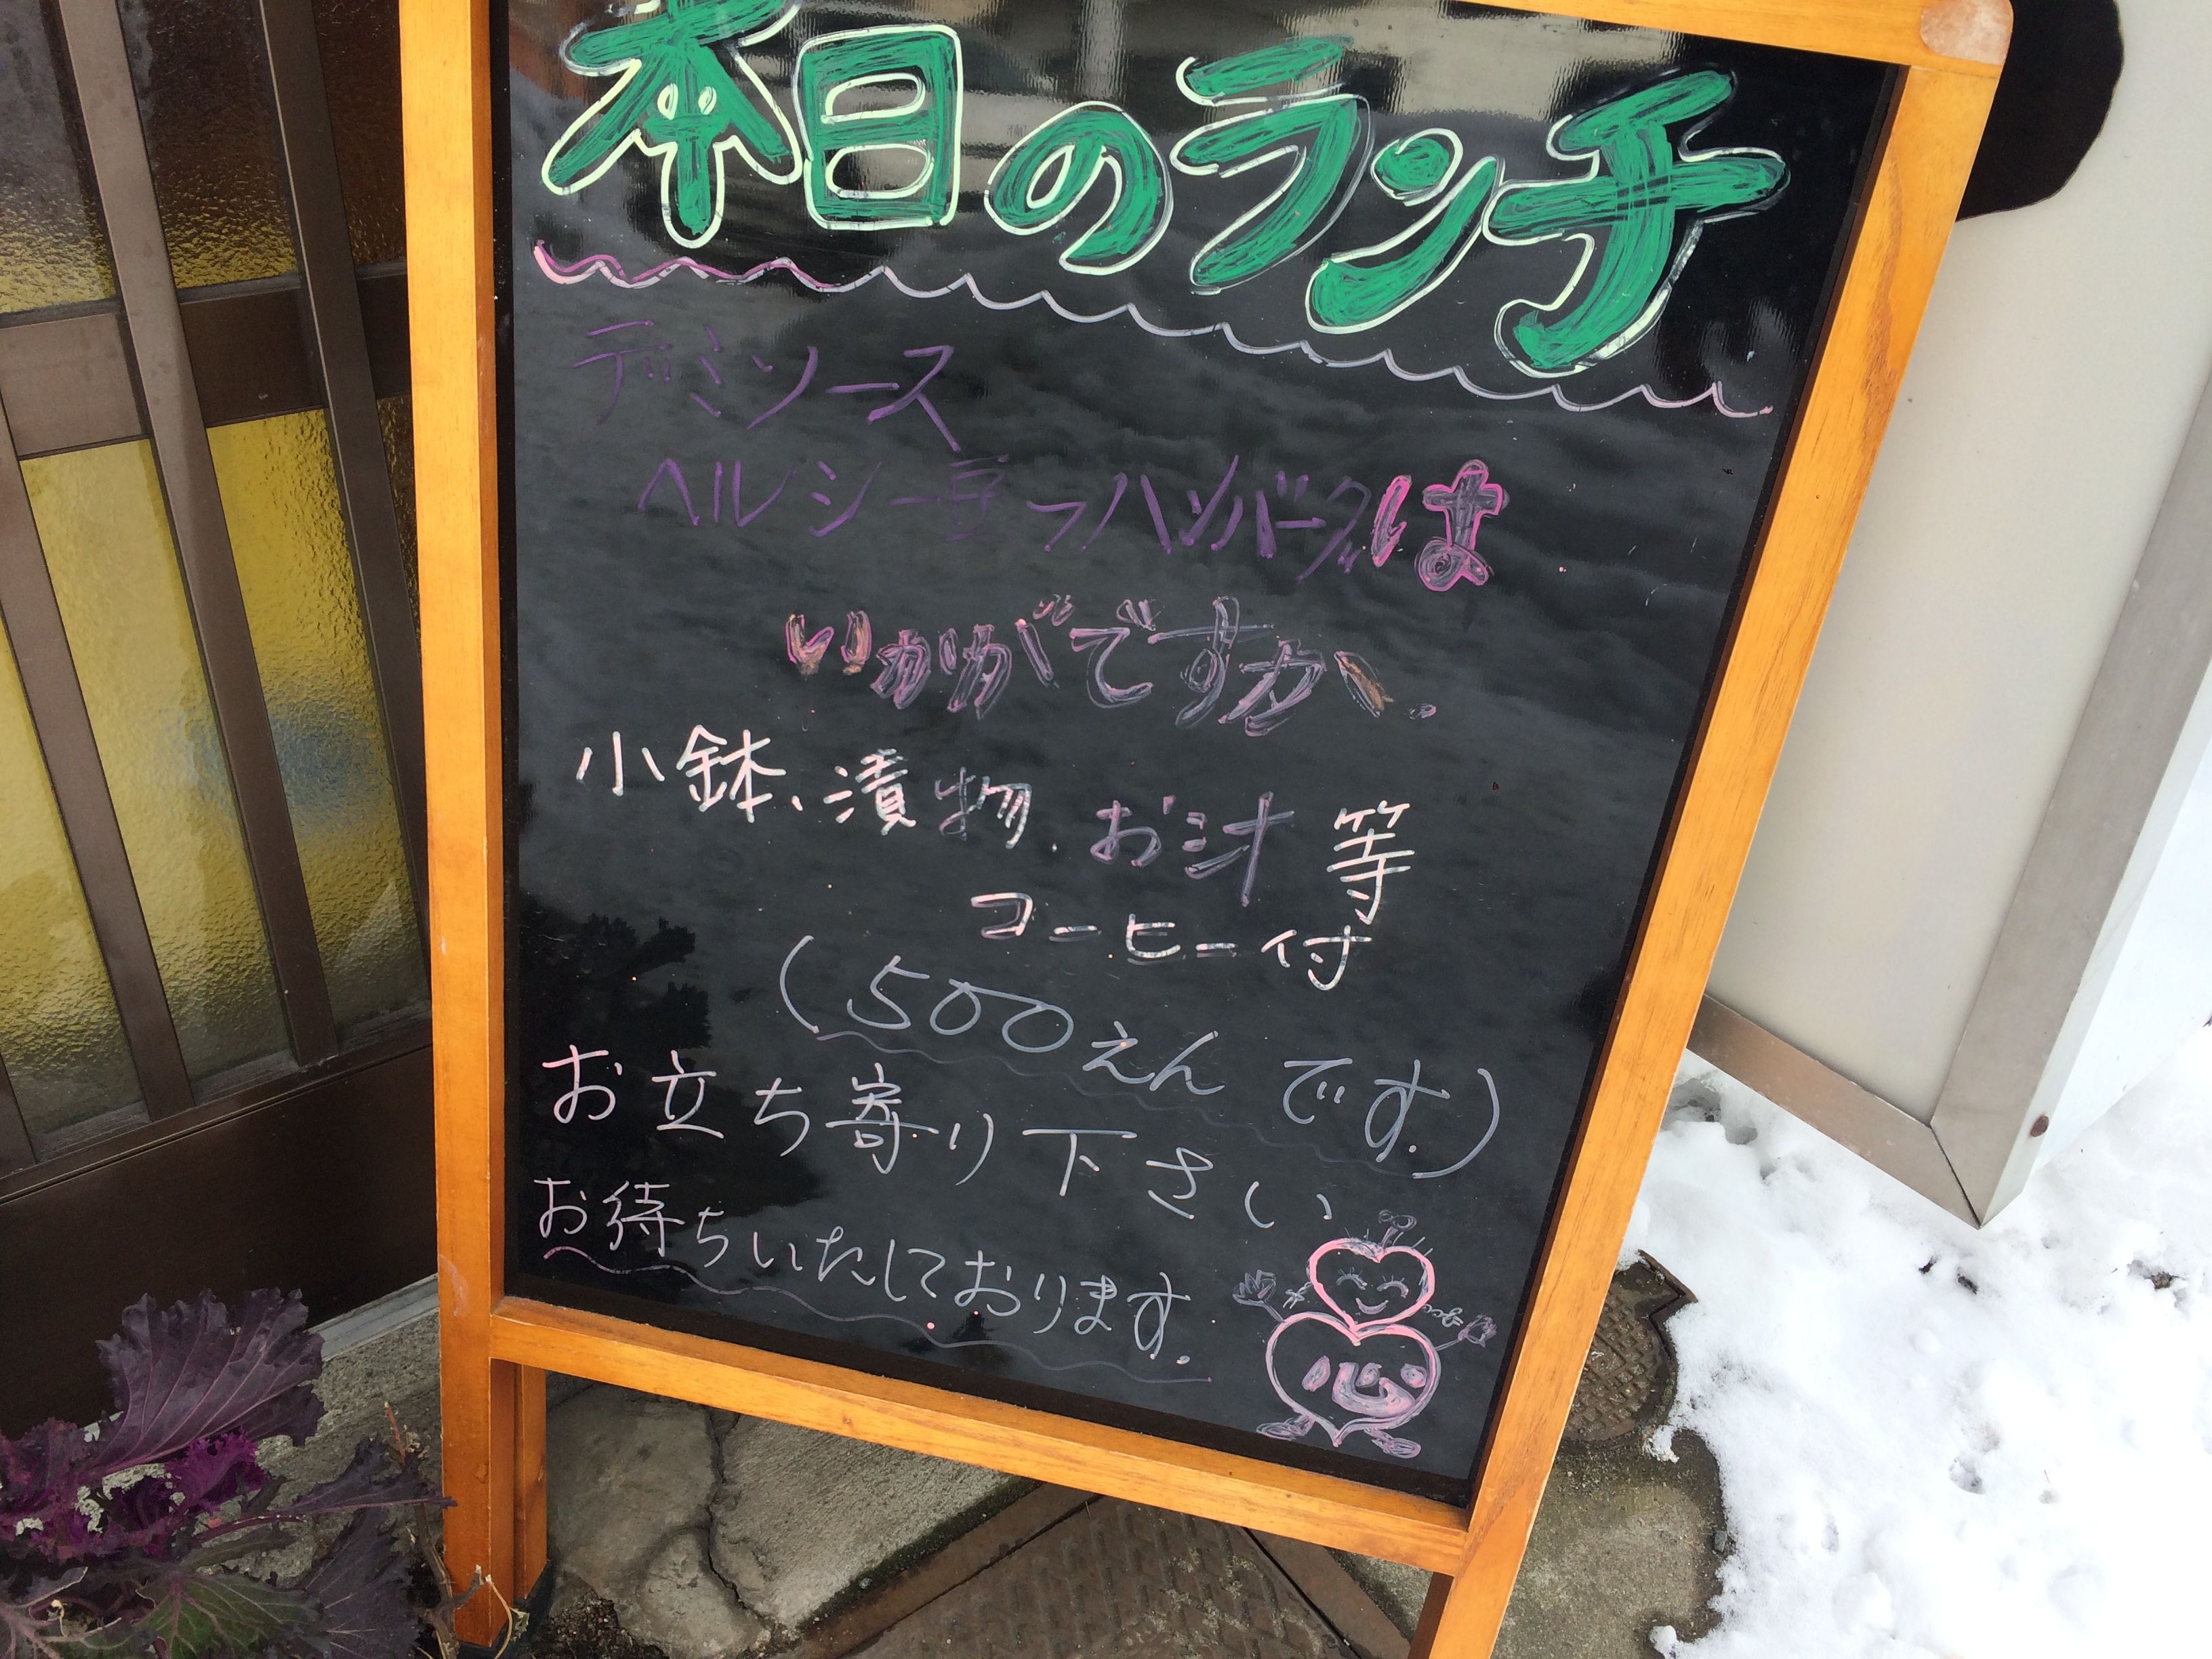 本日のランチ
デミソース
ヘルシー豆フハンバーグは
いかがですか.
小鉢、漬物、お汁等
コーヒー付
(500えんです.)
お立ち寄り下さい
お待ちいたしております.